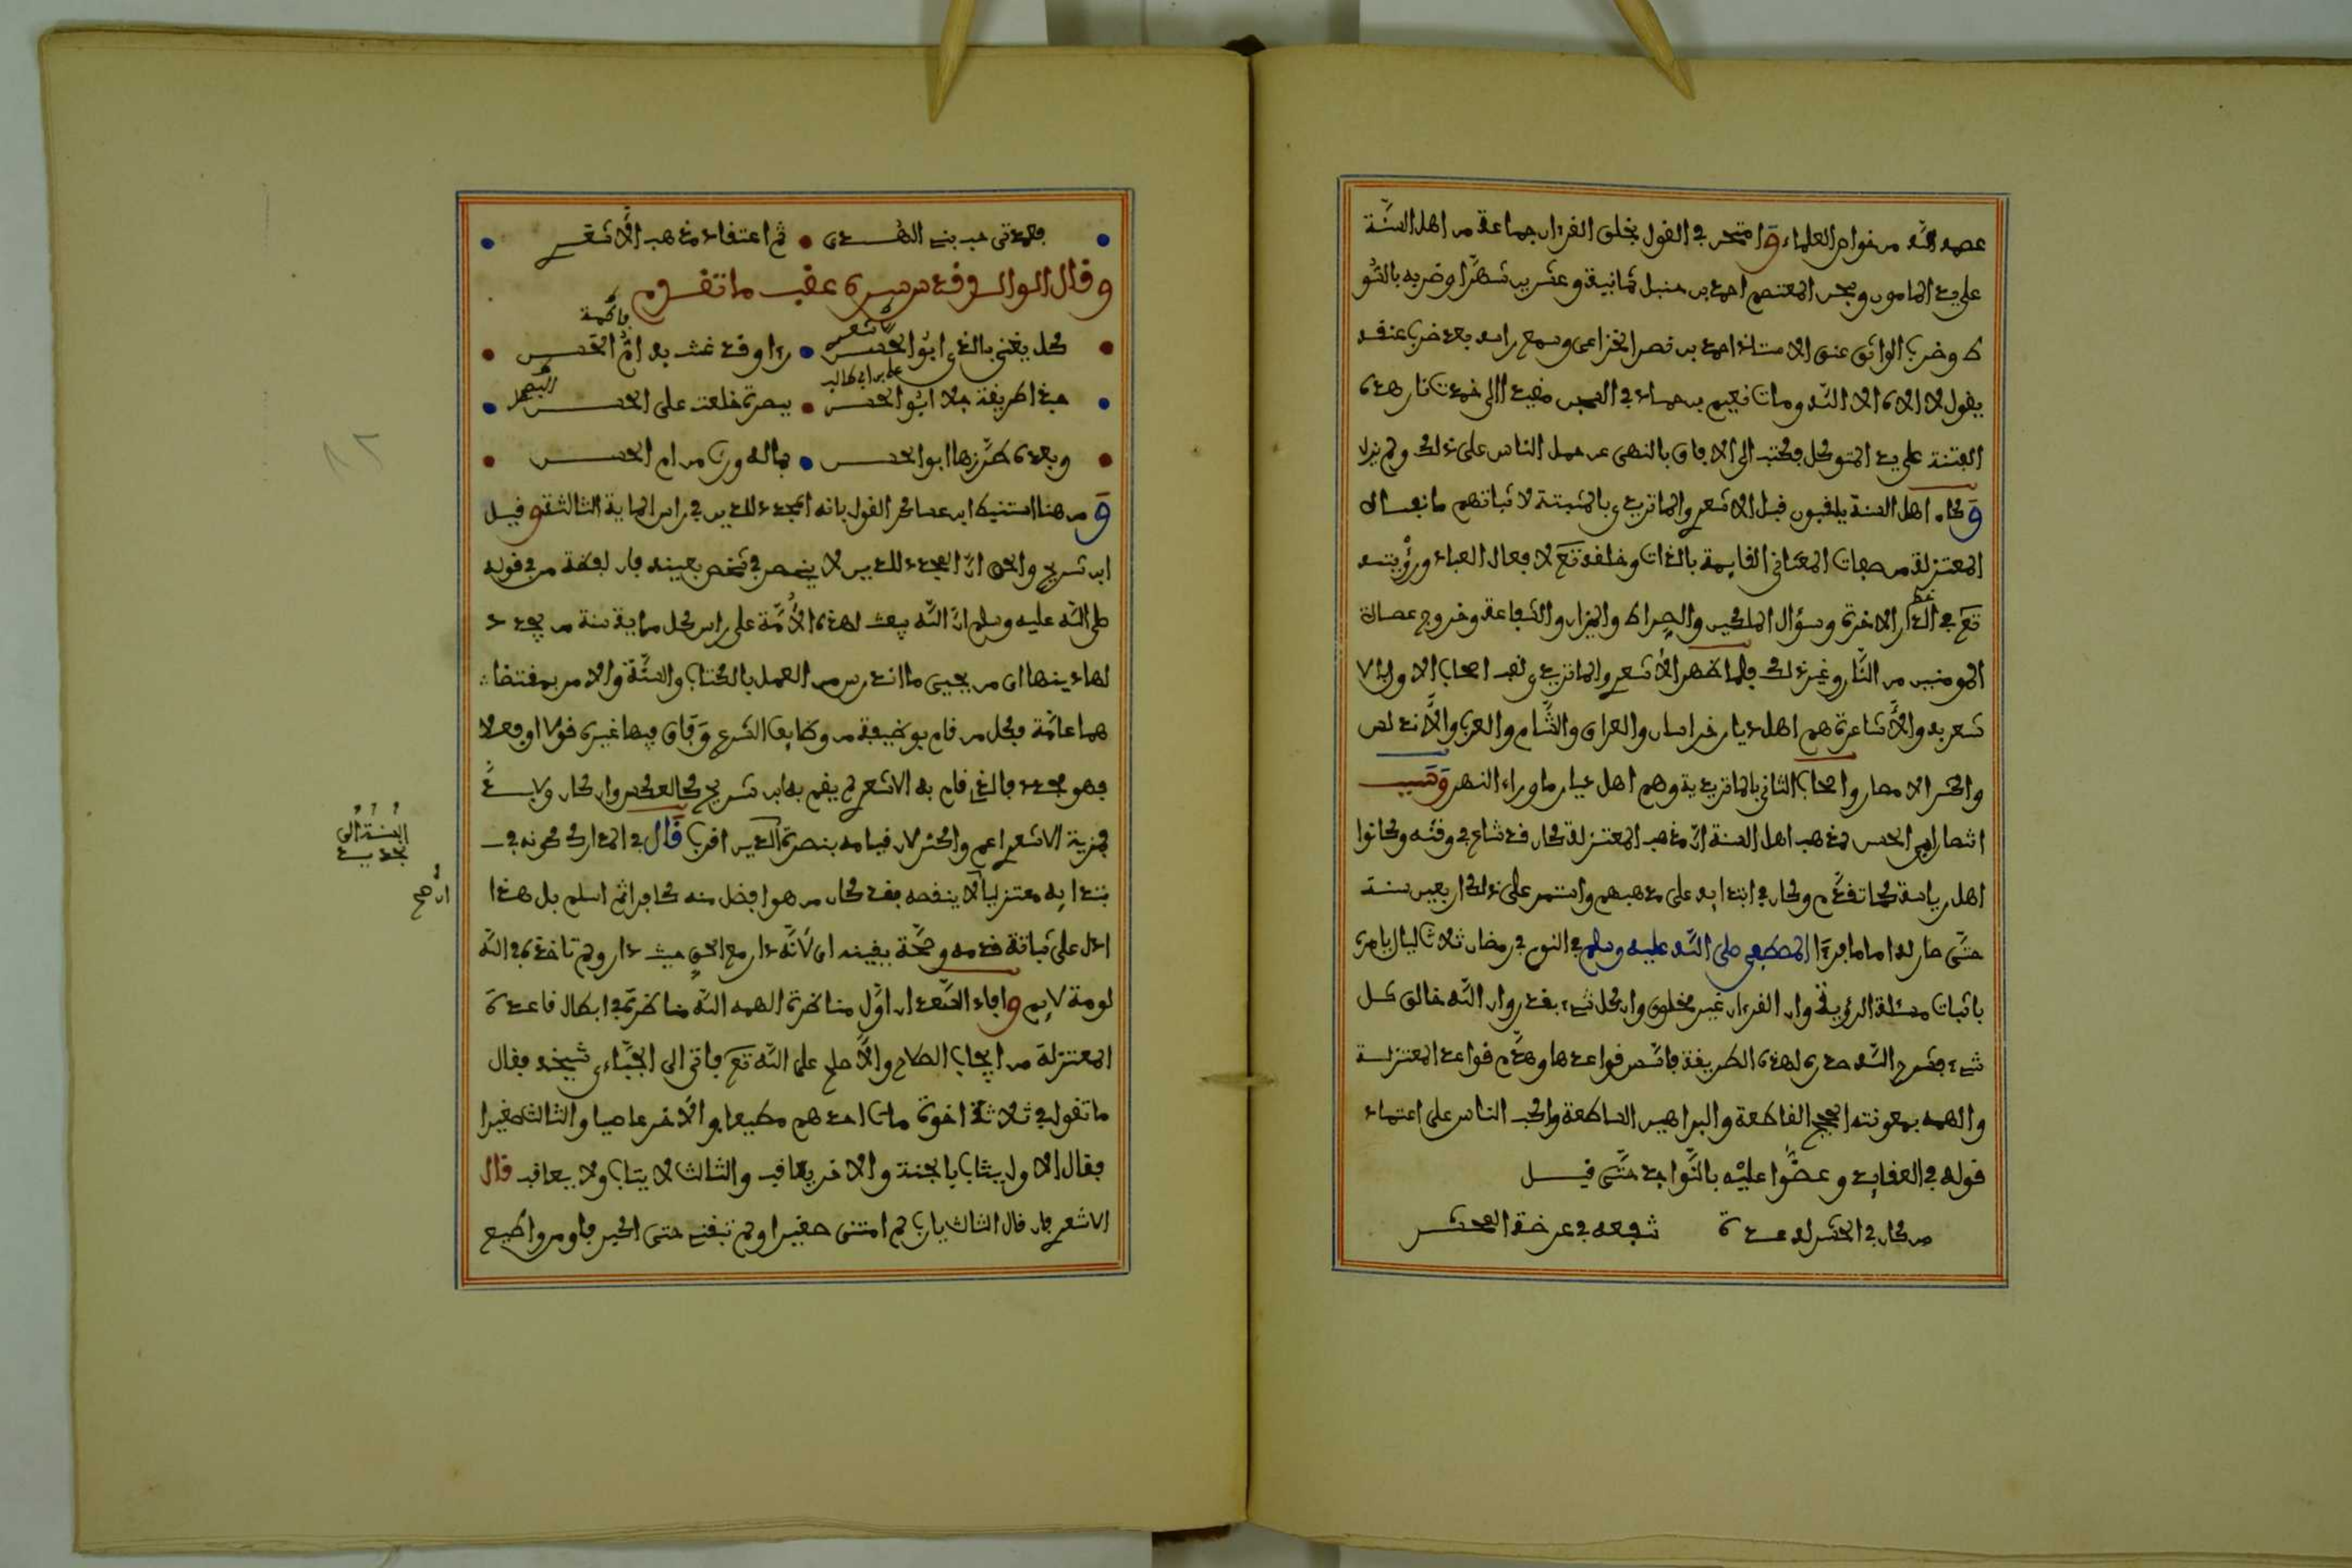 عصمه الله من خواص العلماء وامتحن في القول بخلق القرءان جماعة من أهل السنة
على يد المامون وسجن المعتصم احمد بن حنبل ثمانية وعشرين شهرا وضربه بالسو
ط وضرب الواثق عنق الاستاذ احمد بن نصر الخزاعى وسمع راسه بعد ضرب عنقه
يقول لا الاه الا الله ومات نعيم بن حماد في السجن مقيدا الى خمدت نار هذه
الفتنة على يد المتوكل فكتب الى الافاق بالنهى عن حمل الناس على ذلك ولم يزل
وكان اهل السنة يلقبون قبل الاشعري والماتريدي بالمثبتة لاثباتهم ما نفاه
المعتزلة من صفات المعاني القايمة بالذات وخلقه تع لافعال العباد ورؤيته
تع في الدار الاخرة وسؤال الملكين والصراط والميزان والشفاعة وخروج عصاة
المومنين من النار وغير ذلك فلما ظهر الأشعري والماتريدي لقب اصحاب الاول بالا
شعرية والأشاعرة هم اهل ديار خراسان والعراق والشام والعرب والأندلس
واكثر الامصار واصحاب الثاني بالماتريدية وهم اهل ديار ما وراء النهر وسبب
انتصار ابي الحسن لمذهب اهل السنة ان مذهب المعتزلة كان قد شاع في وقته وكانوا
اهل رياسة كما تقدم وكان في ابتدايه على مذهبهم واستمر على ذلك اربعين سنة
حتى صار لهم اماما فرءا المصطفى صلى الله عليه وسلم في النوم في رمضان ثلاث ليال يامره
باثبات مسئلة الرؤية وان القرءان غير مخلوق وان كل شيء بقدر وان الله خالق كل
شيء فشرح الله صدره لهذه الطريقة فاسس قواعدها وهدم قواعد المعتزلة
والهمه بمعونته الحجج القاطعة والبراهين الساطعة واكب الناس على اعتماد
قوله في العقايد وعضوا عليه بالنواجد حتى قيل
من كان في الحشر له عدة شفعه في عرضة المحشر
فعدتى حب بنى الهدى ثم اعتقاد مذهب الأشعري
وقال الوالد قدس سره عقب ما تقدم
كل يغنى بالذي ابو الحسن راوقد غنت به ام الحسن
الاشعري
فاطمة
حبذا طريقة جلا ابو الحسن ببصرة خلعت على الحسن
على بن ابي طالب
البصري
وبعده طرزها ابو الحسن فماله ورب من ام الحسن
ومن هنا استنبط ابن عساكر القول بانه المجدد للدين في راس الماية الثالثة وقيل
ابن سريج والحق ان المجدد للدين لا ينحصر في شخص بعينه فان لفظة من في قوله
صلى الله عليه وسلم ان الله يبعث لهذه الأمة على راس كل ماية سنة من يجدد
لها دينها اى من يحيى ما اندرس من العمل بالكتاب والسنة والامر بمقتضا
هما عامة فكل من قام بوظيفة من وظايف الشرع وفاق فيها غيره قولا او فعلا
فهو مجدد فالذي قام به الاشعري لم يقم به ابن سريج كالعكس وان كان ولا بد
فمزية الاشعري اعم واكثر لان قيامه بنصرة الدين اقرب قال في المدارك كونه في
ابتدايه معتزليا لا ينقصه فقد كان من هو افضل منه كافرا ثم اسلم بل هذا
ادل على ثباتة قدمه وصحة يقينه اى لأنه دار مع الحق حيث دار ولم تاخذه في الله
لومة لايم وافاد السعد ان أول مناظرة الهمه الله مناظرته في ابطال قاعدة
المعتزلة من ايجاب الصلاح والأصلح على الله تع فاتى الى الجبائي شيخه فقال
ما تقول في ثلاثة اخوة مات احدهم مطيعا والآخر عاصيا والثالث صغيرا
فقال الاول يثاب بالجنة والاخر يعاقب والثالث لا يثاب ولا يعاقب قال
الاشعري فان قال الثالث يا رب لم امتنى صغيرا ولم تبقنى حتى اكبر فاومن واطيع